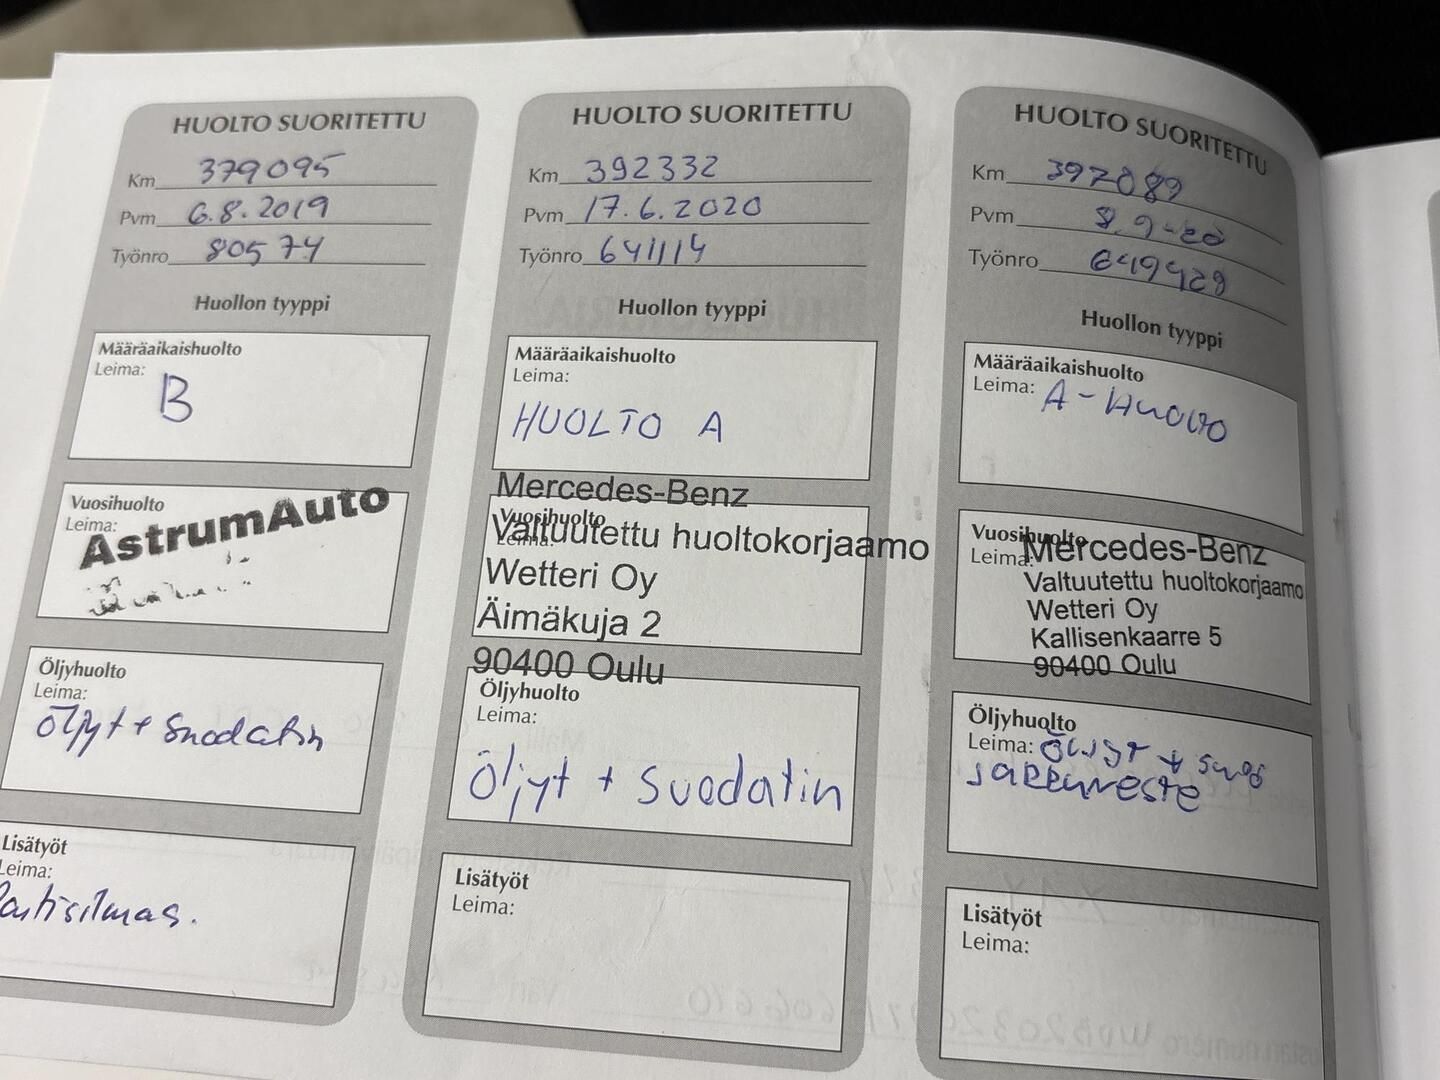 HUOLTO SUORITETTU
Km 379095
Pvm 6.8.2019
Työnro 80574
Huollon tyyppi
Määräaikaishuolto
Leima:
B
Vuosihuolto
Leima:
AstrumAuto
Öljyhuolto
Leima:
Öljyt + Suodatin
Lisätyöt
Leima:
HUOLTO SUORITETTU
Km 392332
Pvm 17.6.2020
Työnro 641114
Huollon tyyppi
Määräaikaishuolto
Leima:
HUOLTO A
Mercedes-Benz
Vuosihuolto
Leima:
Valtuutettu huoltokorjaamo
Wetteri Oy
Äimäkuja 2
90400 Oulu
Öljyhuolto
Leima:
Öljyt + Suodatin
Lisätyöt
Leima:
HUOLTO SUORITETTU
Km 397089
Pvm 8.9-20
Työnro 649429
Huollon tyyppi
Määräaikaishuolto
Leima: A-HUOLTO
Vuosihuolto
Leima:
Mercedes-Benz
Valtuutettu huoltokorjaamo
Wetteri Oy
Kallisenkaarre 5
90400 Oulu
Öljyhuolto
Leima: ÖLJYT + SUOD
JARRUNESTE
Lisätyöt
Leima: